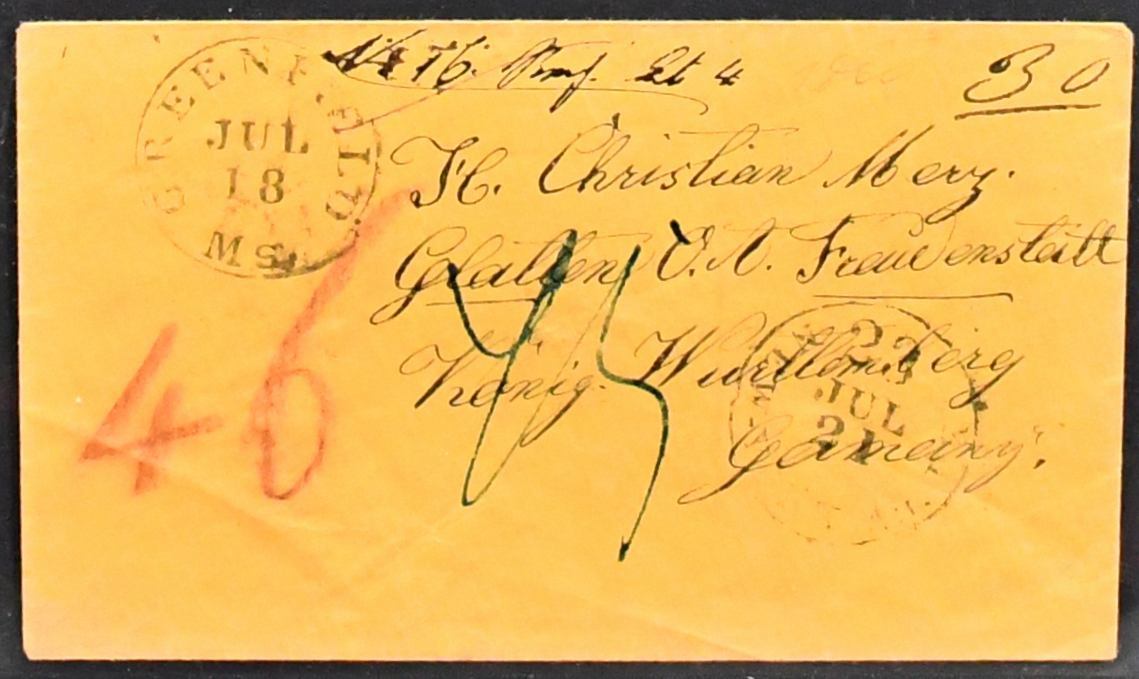 GREENFIELD
JUL
18
MS.
30
H. Christian Merz.
Glatten O.A. Freudenstadt
König. Würtemberg
Germany.
46
45
23
JUL
21